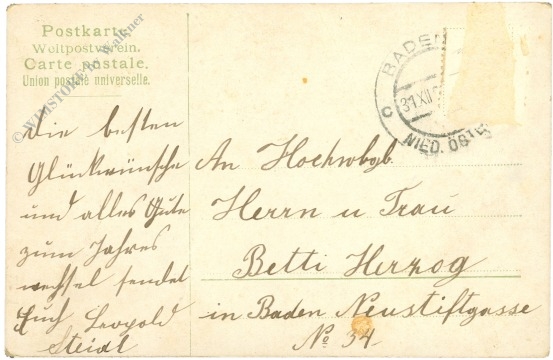 Postkarte.
Weltpostverein.
Carte postale.
Union postale universelle.
© WIMSTORE by Walkner
Die besten
Glückwünsche
und alles Gute
zum Jahres
wechsel sendet
Euch Leopold
Steidl
BADEN
31 XII
C
NIED. ÖSTE
An Hochwbgb.
Herrn u Frau
Betti Herzog
in Baden Neustiftgasse
No 34